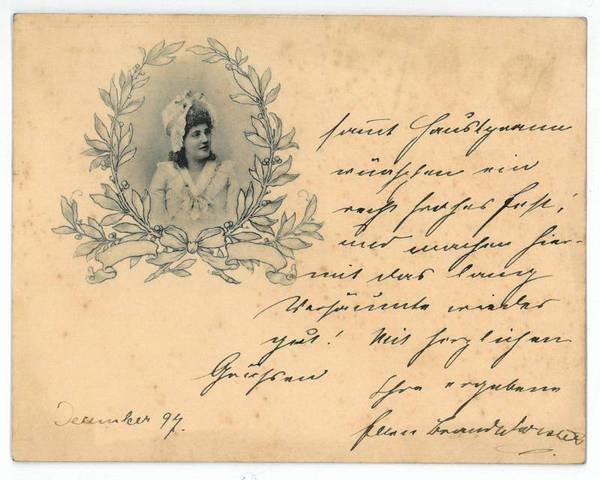 samt Haustyrann
wünschen ein
recht frohes Fest;
und machen hier-
mit das lang
Versäumte wieder
gut! Mit herzlichen
Grüssen Ihre ergebene
Ellen Brandt
December 97.